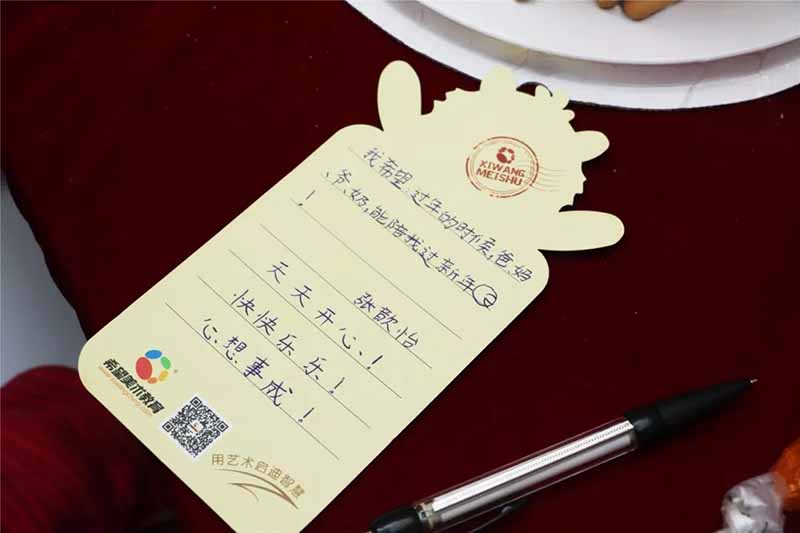 XIWANG
MEISHU
我希望,过年的时候,爸、妈
、爷、奶,能陪我过新年
!
张歆怡
天天开心、!
快快乐乐!
心想事成!
希望美术教育
用艺术启迪智慧